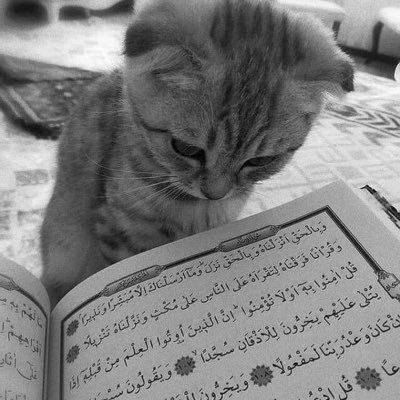 وَبِالْحَقِّ اَنْزَلْنَاهُ وَبِالْحَقِّ نَزَلَ وَمَٓا اَرْسَلْنَاكَ اِلَّا مُبَشِّرًا وَنَذِيرًا
وَقُرْاٰنًا فَرَقْنَاهُ لِتَقْرَاَهُ عَلَى النَّاسِ عَلٰى مُكْثٍ وَنَزَّلْنَاهُ تَنْزِيلًا
قُلْ اٰمِنُوا بِهِٓ اَوْ لَا تُؤْمِنُوا اِنَّ الَّذِينَ اُوتُوا الْعِلْمَ مِنْ قَبْلِهِٓ اِذَا
يُتْلٰى عَلَيْهِمْ يَخِرُّونَ لِلْاَذْقَانِ سُجَّدًا وَيَقُولُونَ
اِنْ كَانَ وَعْدُ رَبِّنَا لَمَفْعُولًا وَيَخِرُّونَ
قُلِ